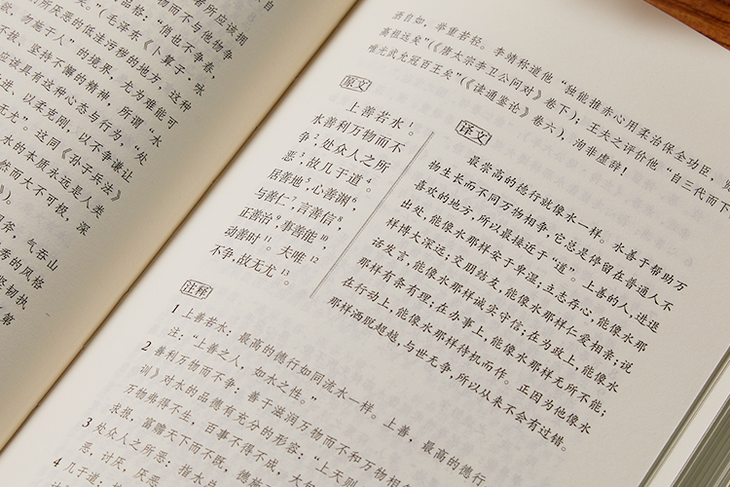 品格:“俏也不争春,
万物而不与他物争
所厌恶的低洼污秽的地方,这种
劳施于人”的境界,无为难能可
”(毛泽东《卜算子·咏
不拔、坚持不懈的精神,所谓“水
应该具有这种心态与行为,“处
进,以柔克刚,以不争谦让
无尤”。这同《孙子兵法》
水的本质永远是人类
然而大不可极,深
气吞山
秀的风格
坚韧执
(第
酒自如,举重若轻。李靖称道他“独能推赤心用柔治保全功臣,
高祖远矣”(《唐太宗李卫公问对》卷下);王夫之评价他“自三代而下
唯光武允冠百王矣”(《读通鉴论》卷六),洵非虚辞!
原文
上善若水1。
水善利万物而不
争2,处众人之所
恶3,故几于道4。
居善地5,心善渊6,
与善仁7,言善信8,
正善治9,事善能10,
动善时11。夫唯12
不争,故无尤13。
译文
最崇高的德行就像水一样。水善于帮助万
物生长而不同万物相争,它总是停留在普通人不
喜欢的地方,所以最接近于“道”。上善的人,进退
出处,能像水那样安于卑湿;立志存心,能像水那
样博大深远;交朋结友,能像水那样仁爱相亲;说
话发言,能像水那样诚实守信;在为政上,能像水
那样有条有理;在办事上,能像水那样无所不能;
在行动上,能像水那样待机而作。正因为他像水
那样洒脱超越,与世无争,所以从来不会有过错。
注释
1 上善若水:最高的德行如同流水一样。上善,最高的德行
注:“上善之人,如水之性。”
2 善利万物而不争:善于滋润万物而不和万物相
训》对水的品德有充分的形容:“上天则
万物弗得不生,百事不得不成,大
求报,富赡天下而不既,德施
3 处众人之所恶:指水
恶,讨厌、厌恶
4 几于道: